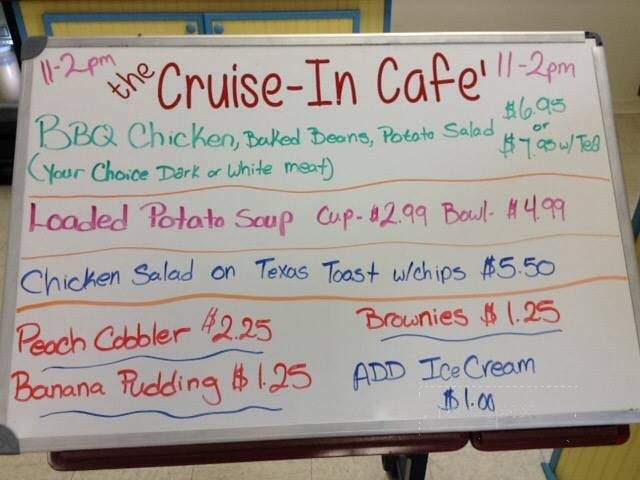 11-2pm the Cruise-In Cafe' 11-2pm
BBQ Chicken, Baked Beans, Potato Salad $6.95
or
$7.95 w/Tea
(Your Choice Dark or White meat)
Loaded Potato Soup Cup-$2.99 Bowl-$4.99
Chicken Salad on Texas Toast w/chips $5.50
Peach Cobbler $2.25
Brownies $1.25
Banana Pudding $1.25
ADD Ice Cream
$1.00